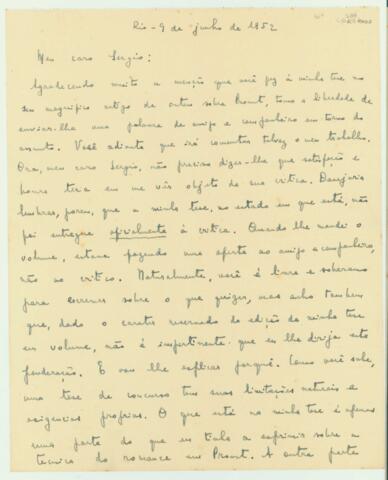 Rio - 9 de junho de 1952
Meu caro Sergio:
Agradecendo muito a menção que você fez à minha tese no
seu magnífico artigo de ontem sobre Proust, tomo a liberdade de
enviar-lhe uma palavra de amigo e companheiro em torno do
assunto. Você adianta que irá comentar talvez o meu trabalho.
Ora, meu caro Sergio, não preciso dizer-lhe que satisfação e
honra teria em me ver objeto de sua critica. Desejaria
lembrar, porem, que a minha tese, no estado em que está, não
foi entregue oficialmente à critica. Quando lhe mandei o
volume, estava fazendo uma oferta ao amigo e companheiro,
não ao critico. Naturalmente, você é livre e soberano
para escrever sobre o que quizer, mas acho tambem
que, dado o carater reservado da edição da minha tese
em volume, não é impertinente que eu lhe dirija esta
ponderação. E vou lhe explicar porquê. Como você sabe,
uma tese de concurso tem suas limitações naturais e
exigencias proprias. O que está na minha tese é apenas
uma parte do que eu tinha a exprimir sobre a
tecnica do romance em Proust. A outra parte